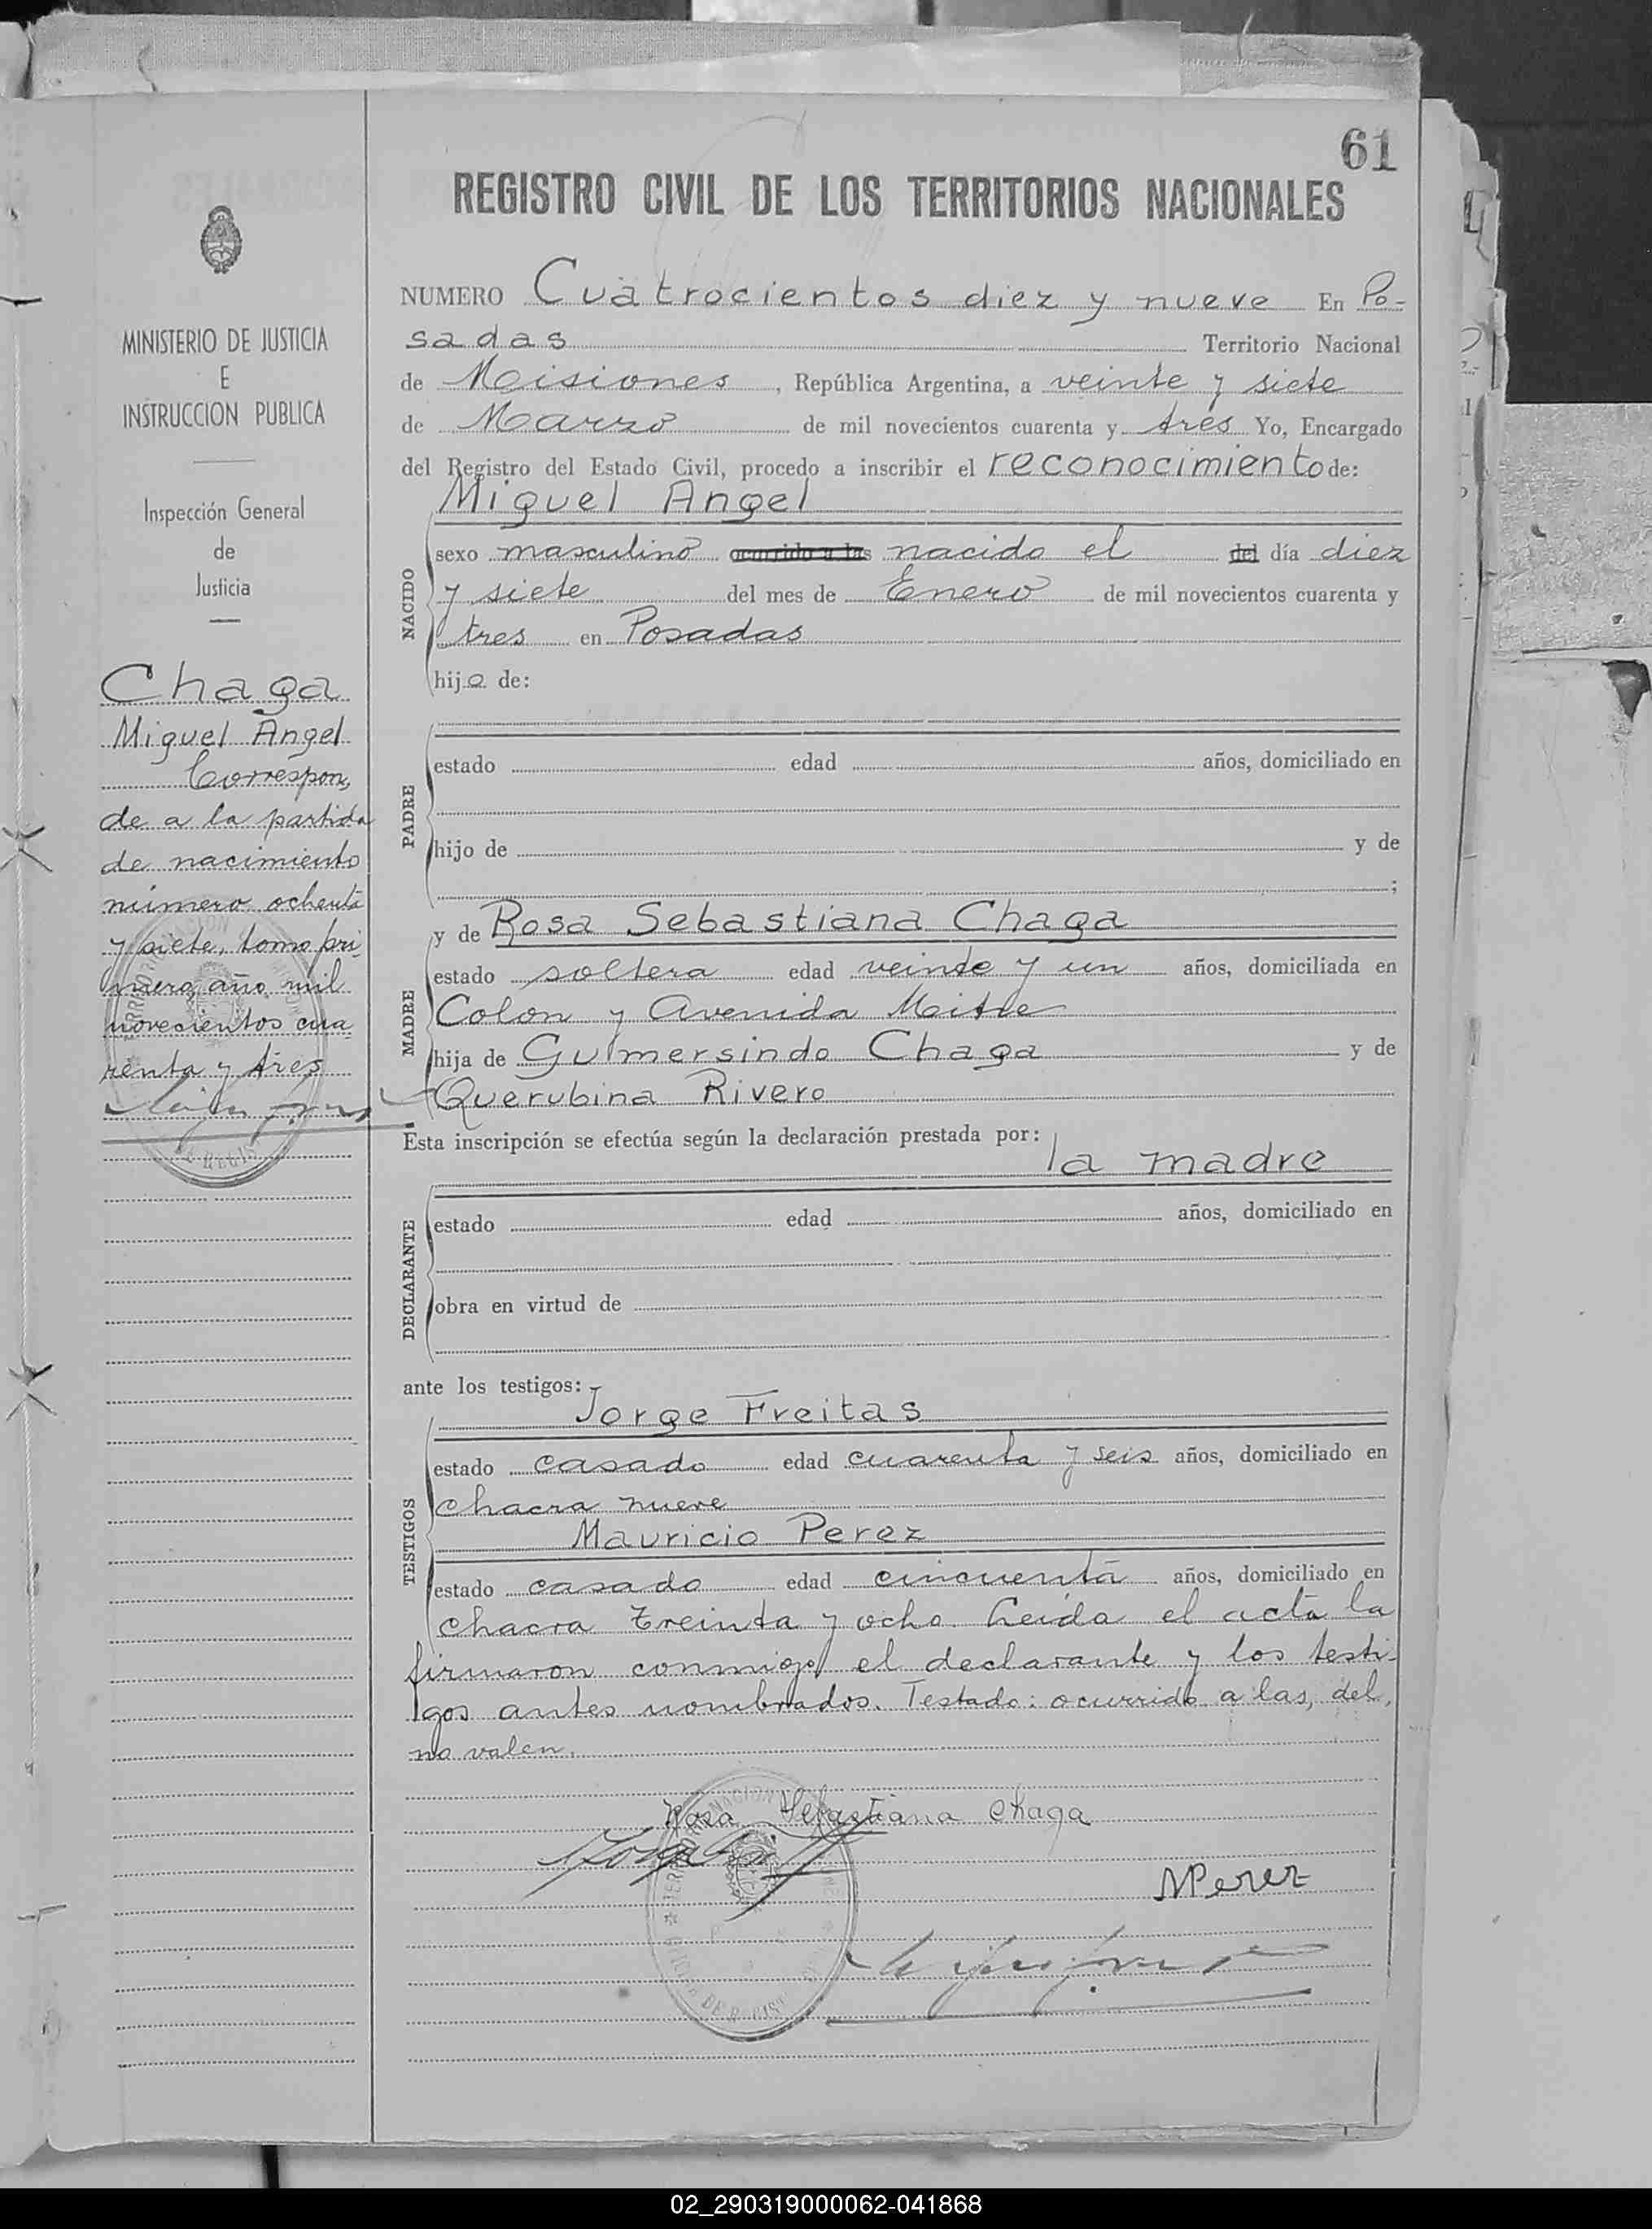 61
REGISTRO CIVIL DE LOS TERRITORIOS NACIONALES
MINISTERIO DE JUSTICIA
E
INSTRUCCION PUBLICA
Inspección General
de
Justicia
Chaga
Miguel Angel
Correspon,
de a la partida
de nacimiento
número ochenta
y siete, tomo pri
mero, año mil
novecientos cua
renta y tres
NUMERO Cuatrocientos diez y nueve En Po-
sadas Territorio Nacional
de Misiones, República Argentina, a veinte y siete
de Marzo de mil novecientos cuarenta y tres Yo, Encargado
del Registro del Estado Civil, procedo a inscribir el reconocimiento de:
Miguel Angel
NACIDO
sexo masculino ocurrido a las nacido el del día diez
y siete del mes de Enero de mil novecientos cuarenta y
tres en Posadas
hijo de:
PADRE
estado edad años, domiciliado en
hijo de y de
;
y de Rosa Sebastiana Chaga
MADRE
estado soltera edad veinte y un años, domiciliada en
Colon y Avenida Mitre
hija de Gulmersindo Chaga y de
Querubina Rivero
Esta inscripción se efectúa según la declaración prestada por:
la madre
DECLARANTE
estado edad años, domiciliado en
obra en virtud de
ante los testigos:
Jorge Freitas
TESTIGOS
estado casado edad cuarenta y seis años, domiciliado en
chacra nueve
Mauricio Perez
estado casado edad cincuenta años, domiciliado en
chacra treinta y ocho. Leída el acta la
firmaron conmigo el declarante y los testi-
gos antes nombrados. Testado: ocurrido a las, del,
no valen.
Rosa Sebastiana Chaga
MPerez
02_290319000062-041868